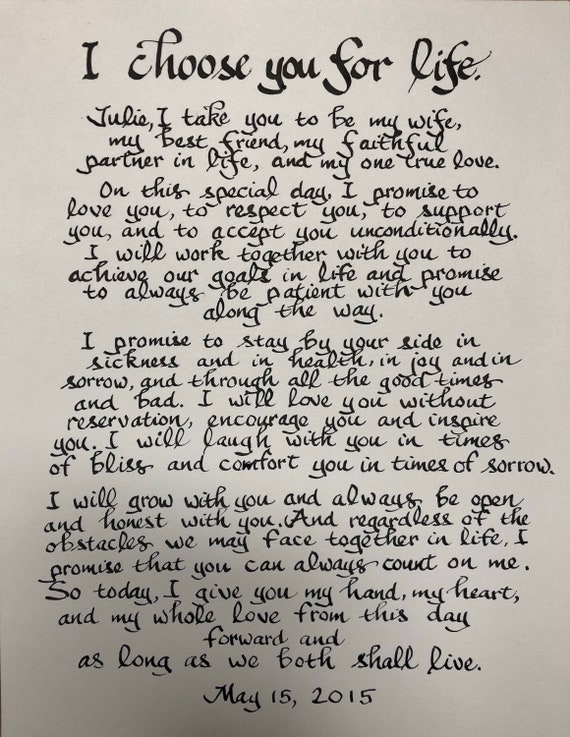 I choose you for life.
Julie, I take you to be my wife,
my best friend, my faithful
partner in life, and my one true love.
On this special day, I promise to
love you, to respect you, to support
you, and to accept you unconditionally.
I will work together with you to
achieve our goals in life and promise
to always be patient with you
along the way.
I promise to stay by your side in
sickness and in health, in joy and in
sorrow, and through all the good times
and bad. I will love you without
reservation, encourage you and inspire
you. I will laugh with you in times
of bliss and comfort you in times of sorrow.
I will grow with you and always be open
and honest with you. And regardless of the
obstacles we may face together in life, I
promise that you can always count on me.
So today, I give you my hand, my heart,
and my whole love from this day
forward and
as long as we both shall live.
May 15, 2015